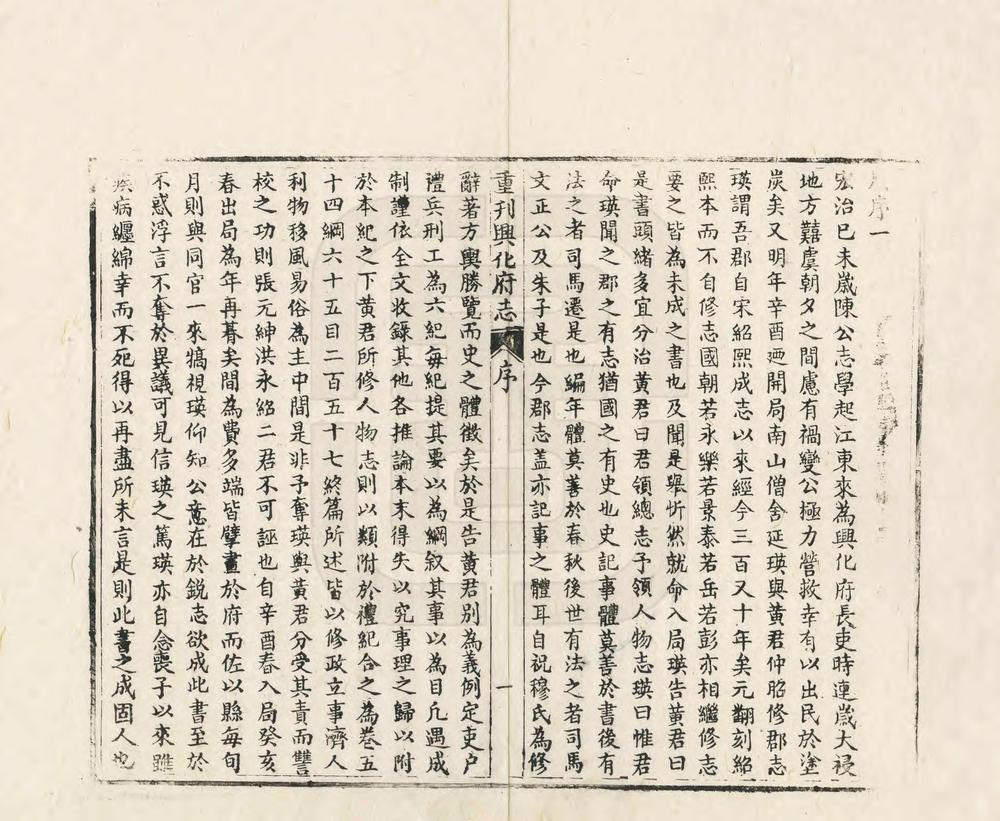 序一
宏治己未歲陳公志學起江東來為興化府長吏時連歲大祲
地方囏虞朝夕之間慮有禍變公極力營救幸有以出民於塗
炭矣又明年辛酉廼開局南山僧舍延瑛與黃君仲昭修郡志
瑛謂吾郡自宋紹熙成志以來經今三百又十年矣元翻刻紹
熙本而不自修志國朝若永樂若景泰若岳若彭亦相繼修志
要之皆為未成之書也及聞是舉忻然就命入局瑛告黃君曰
是書頭緒多宜分治黃君曰君領總志予領人物志瑛曰惟君
命瑛聞之郡之有志猶國之有史也史記事體莫善於書後有
法之者司馬遷是也編年體莫善於春秋後世有法之者司馬
文正公及朱子是也今郡志盖亦記事之體耳自祝穆氏為修
重刊興化府志 序 一
辭著方輿勝覽而史之體徵矣於是告黃君別為義例定吏户
禮兵刑工為六紀每紀提其要以為綱叙其事以為目凡遇成
制謹依全文收錄其他各推論本末得失以究事理之歸以附
於本紀之下黃君所修人物志則以類附於禮紀合之為卷五
十四綱六十五目二百五十七終篇所述皆以修政立事濟人
利物移風易俗為主中間是非予奪瑛與黃君分受其責而讐
校之功則張元紳洪永紹二君不可誣也自辛酉春入局癸亥
春出局為年再暮矣間為費多端皆擘畫於府而佐以縣每旬
月則與同官一來犒視瑛仰知公意在於銳志欲成此書至於
不惑浮言不奪於異議可見信瑛之篤瑛亦自念喪子以來雖
疾病纏綿幸而不死得以再盡所未言是則此書之成固人也